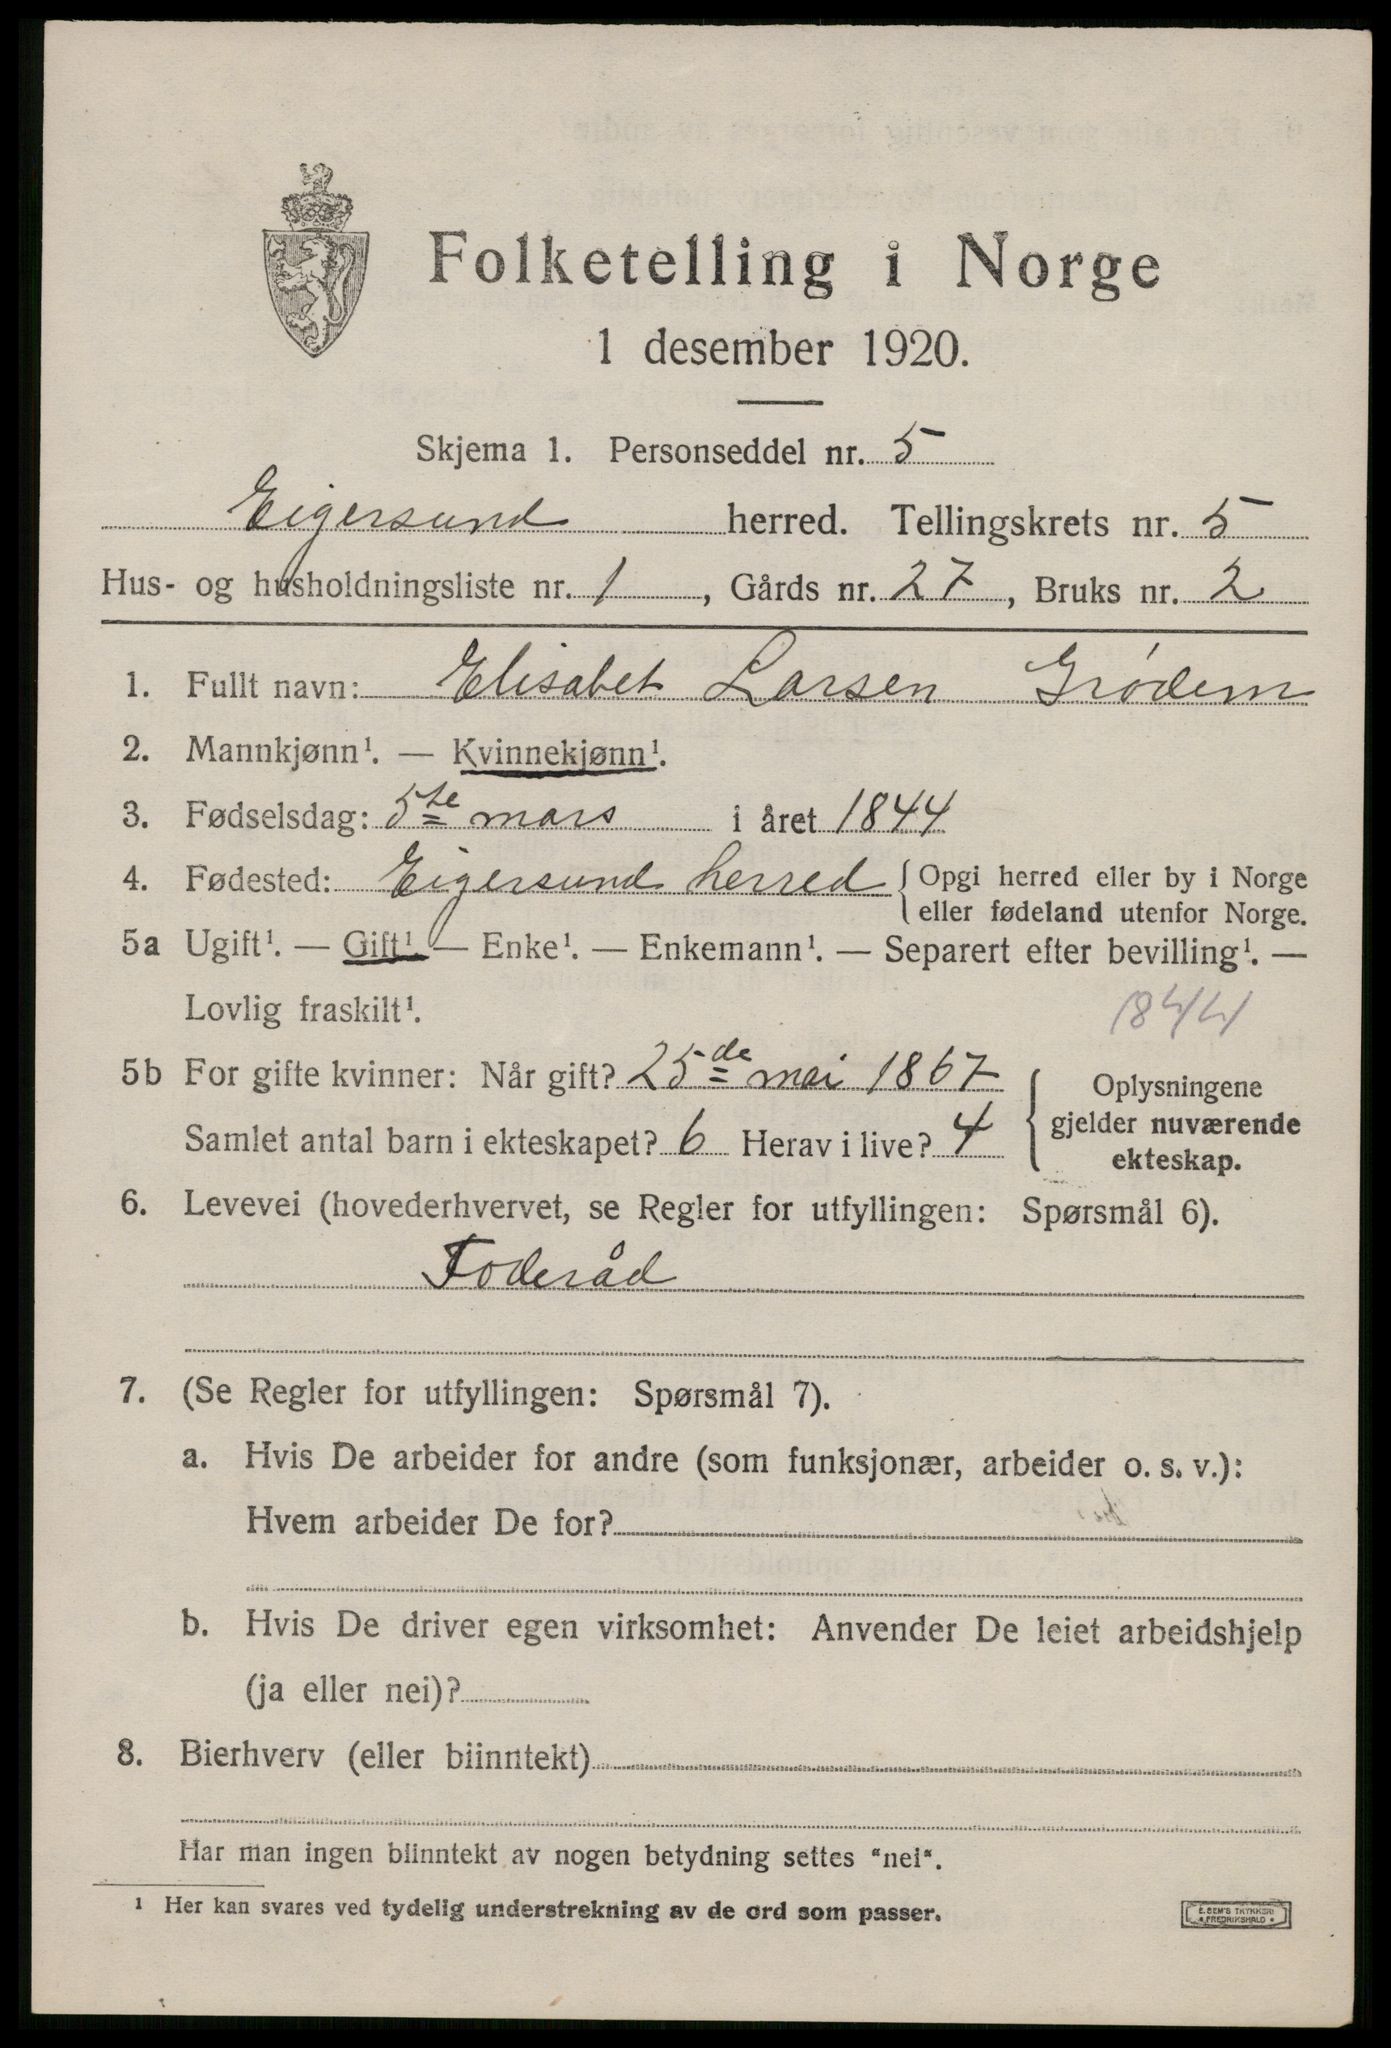 Folketelling i Norge
1 desember 1920.
Skjema 1. Personseddel nr. 5
Eigersund herred. Tellingskrets nr. 5
Hus- og husholdningsliste nr. 1, Gårds nr. 27, Bruks nr. 2
1. Fullt navn: Elisabet Larsen Grødem
2. Mannkjønn¹. — Kvinnekjønn¹.
3. Fødselsdag: 5te mars i året 1844
4. Fødested: Eigersund herred { Opgi herred eller by i Norge
eller fødeland utenfor Norge.
5a Ugift¹. — Gift¹. — Enke¹. — Enkemann¹. — Separert efter bevilling¹. —
Lovlig fraskilt¹.
1844
5b For gifte kvinner: Når gift? 25de mai 1867
Samlet antal barn i ekteskapet? 6 Herav i live? 4
Oplysningene
gjelder nuværende
ekteskap.
6. Levevei (hovederhvervet, se Regler for utfyllingen: Spørsmål 6).
Foderåd
7. (Se Regler for utfyllingen: Spørsmål 7).
a. Hvis De arbeider for andre (som funksjonær, arbeider o. s. v.):
Hvem arbeider De for?
b. Hvis De driver egen virksomhet: Anvender De leiet arbeidshjelp
(ja eller nei)?
8. Bierhverv (eller biinntekt)
Har man ingen biinntekt av nogen betydning settes "nei".
¹ Her kan svares ved tydelig understrekning av de ord som passer.
E. SEM'S TRYKKERI
FREDRIKSHALD